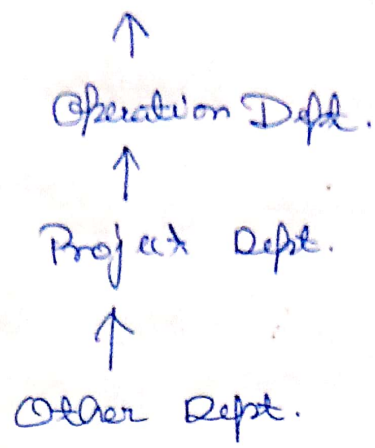 ↑
Operation Dept.
↑
Project Dept.
↑
Other Dept.